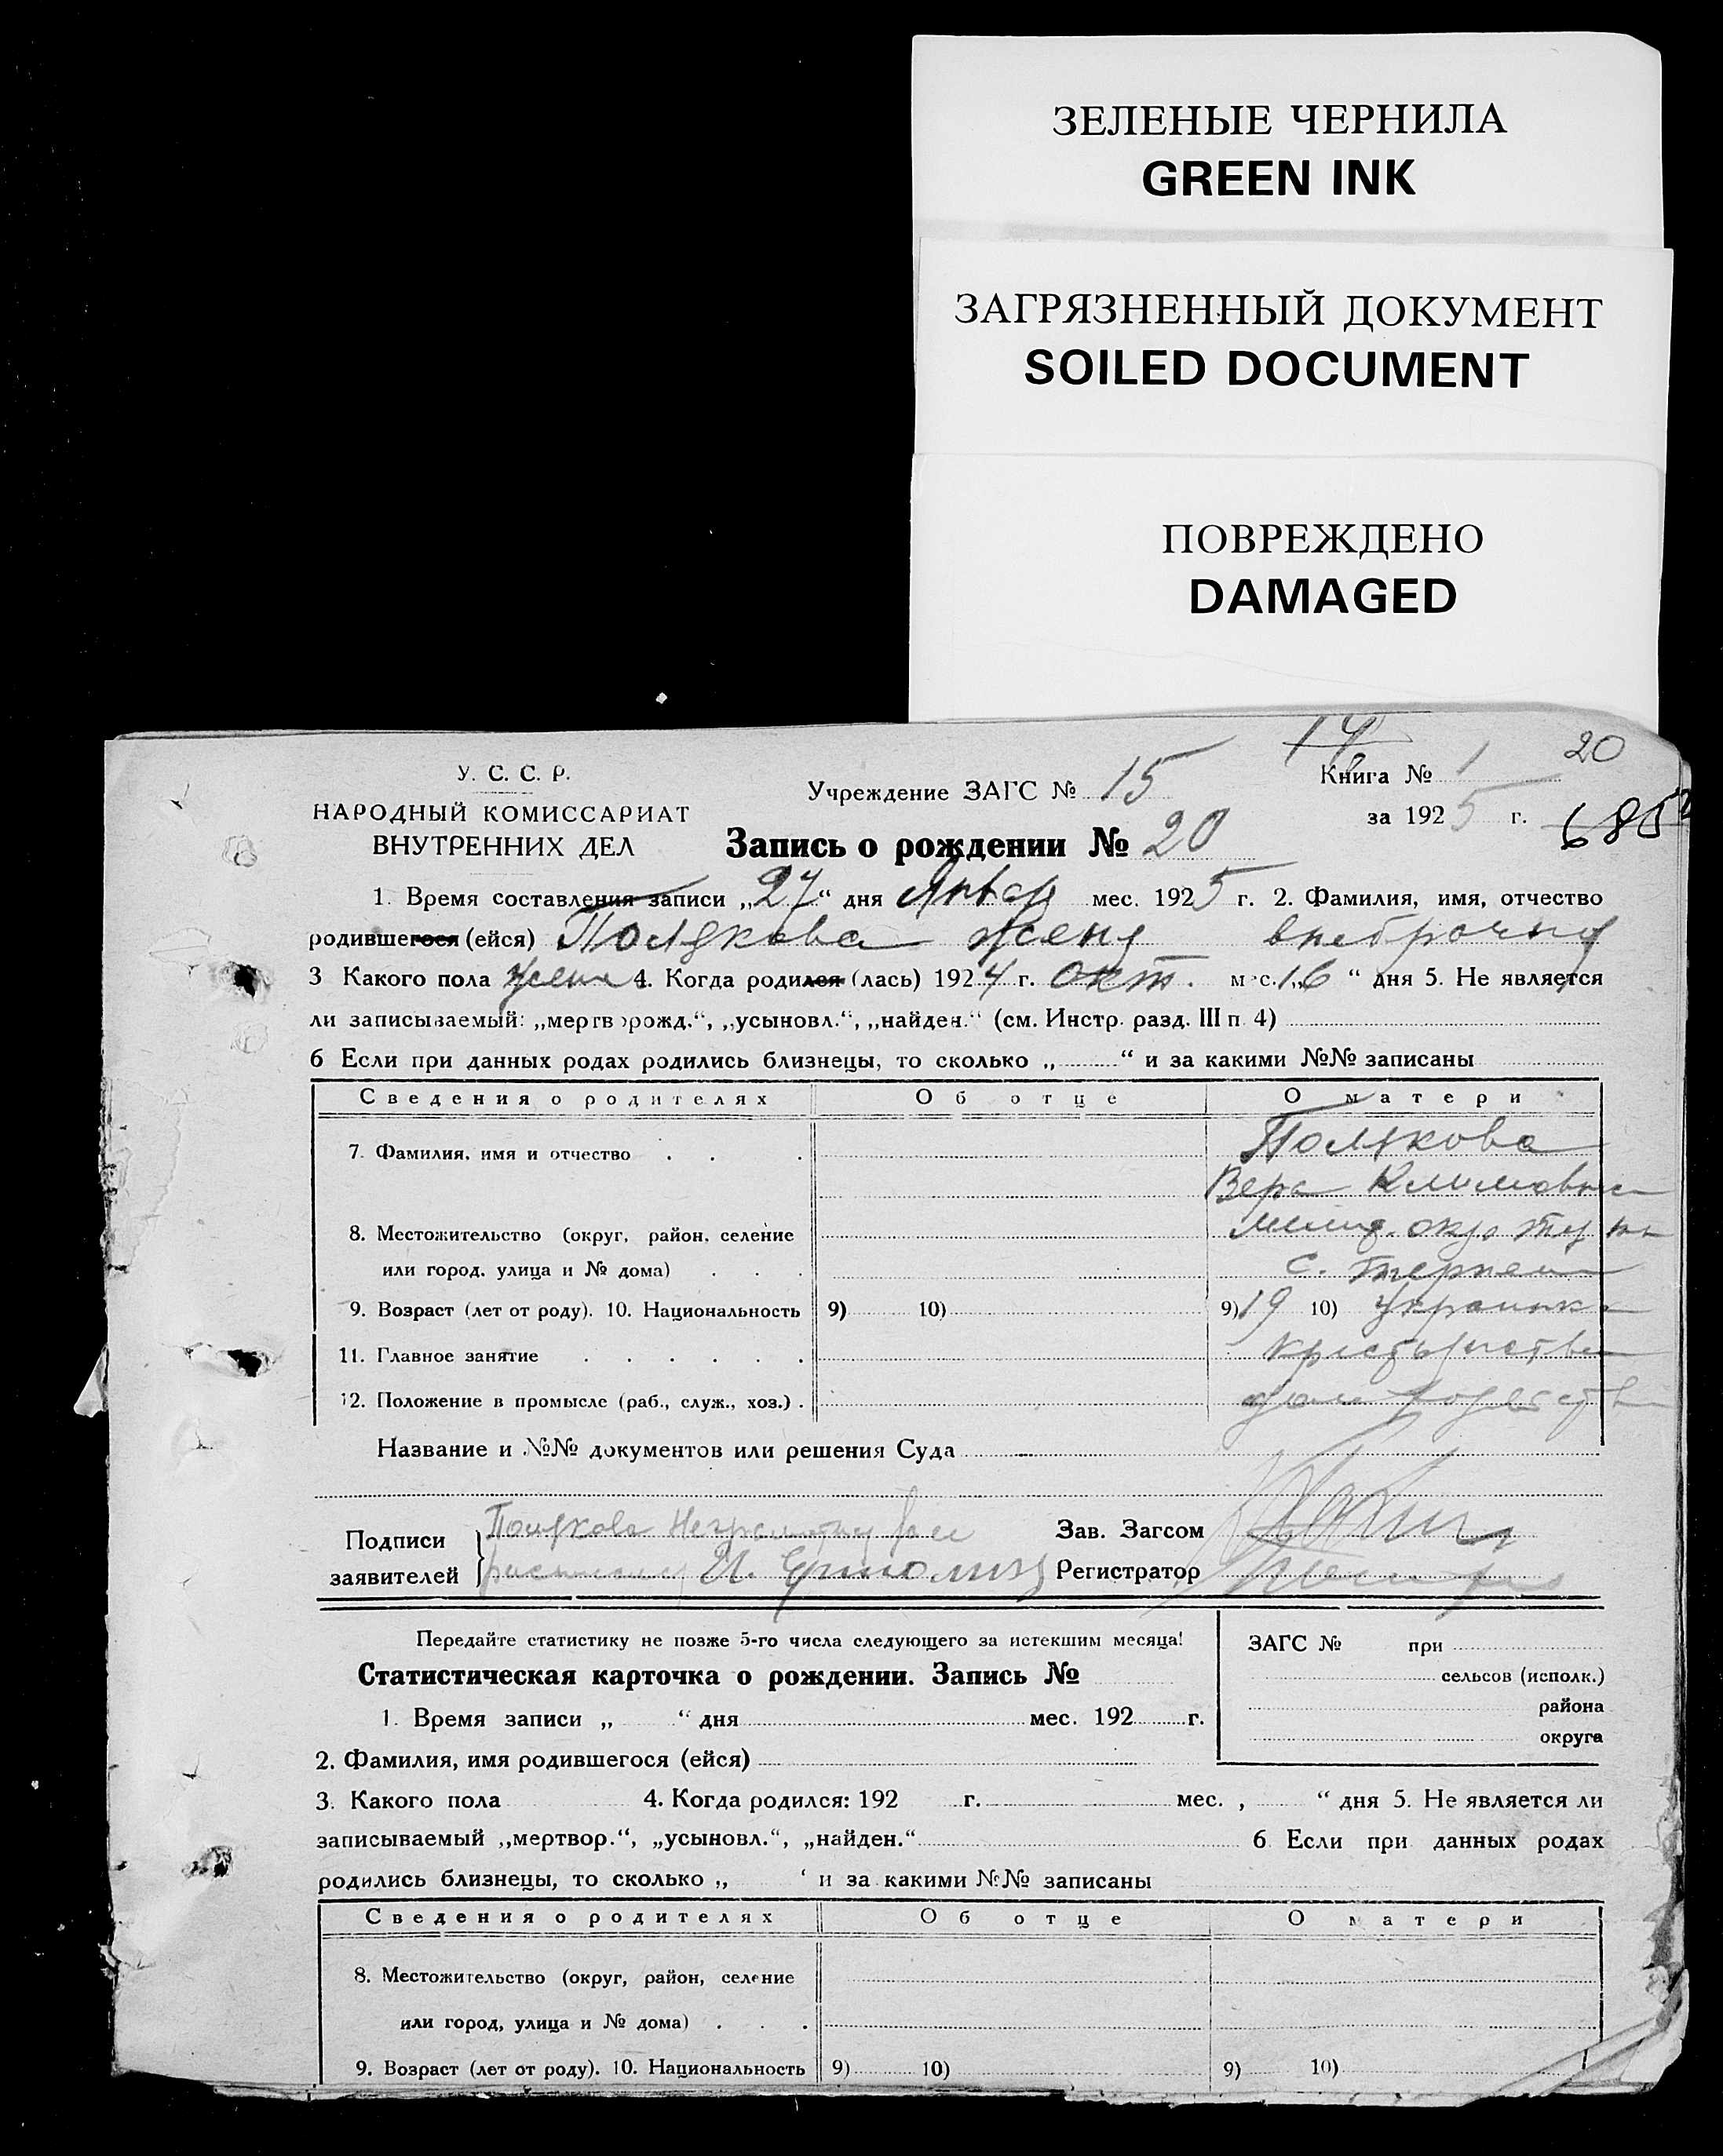 ЗЕЛЕНЫЕ ЧЕРНИЛА
GREEN INK
ЗАГРЯЗНЕННЫЙ ДОКУМЕНТ
SOILED DOCUMENT
ПОВРЕЖДЕНО
DAMAGED
14 20
У. С. С. Р.
НАРОДНЫЙ КОМИССАРИАТ
ВНУТРЕННИХ ДЕЛ
Учреждение ЗАГС № 15
Книга № 1
за 1925 г. 685
Запись о рождении № 20
1. Время составления записи „27“ дня Январ мес. 1925 г. 2. Фамилия, имя, отчество
родившегося (ейся) Полякова Женя внебрачная
3 Какого пола жен 4. Когда родился (лась) 1924 г. окт. мес. „16“ дня 5. Не является
ли записываемый: „мертворожд.“, „усыновл.“, „найден.“ (см. Инстр. разд. III п 4)
6 Если при данных родах родились близнецы, то сколько „ “ и за какими №№ записаны
Сведения о родителях Об отце О матери
7. Фамилия, имя и отчество Полякова
Вера Климовна
8. Местожительство (округ, район, селение Мелит. окр.
или город, улица и № дома) с. Терпение
9. Возраст (лет от роду). 10. Национальность 9) 10) 9) 19 10) Украинка
11. Главное занятие
12. Положение в промысле (раб., служ., хоз.)
Название и №№ документов или решения Суда
Подписи Полякова Неграмотная
заявителей И.
Зав. Загсом
Регистратор
Передайте статистику не позже 5-го числа следующего за истекшим месяца!
Статистическая карточка о рождении. Запись №
ЗАГС № при
сельсов (исполк.)
района
округа
1. Время записи „ “ дня мес. 192 г.
2. Фамилия, имя родившегося (ейся)
3. Какого пола 4. Когда родился: 192 г. мес. „ “ дня 5. Не является ли
записываемый „мертвор.“, „усыновл.“, „найден.“ 6 Если при данных родах
родились близнецы, то сколько „ “ и за какими №№ записаны
Сведения о родителях Об отце О матери
8. Местожительство (округ, район, селение
или город, улица и № дома)
9. Возраст (лет от роду). 10. Национальность 9) 10) 9) 10)